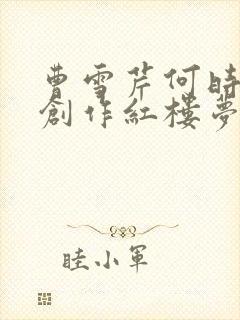 曹雪芹何時
創作紅樓夢
睦小軍